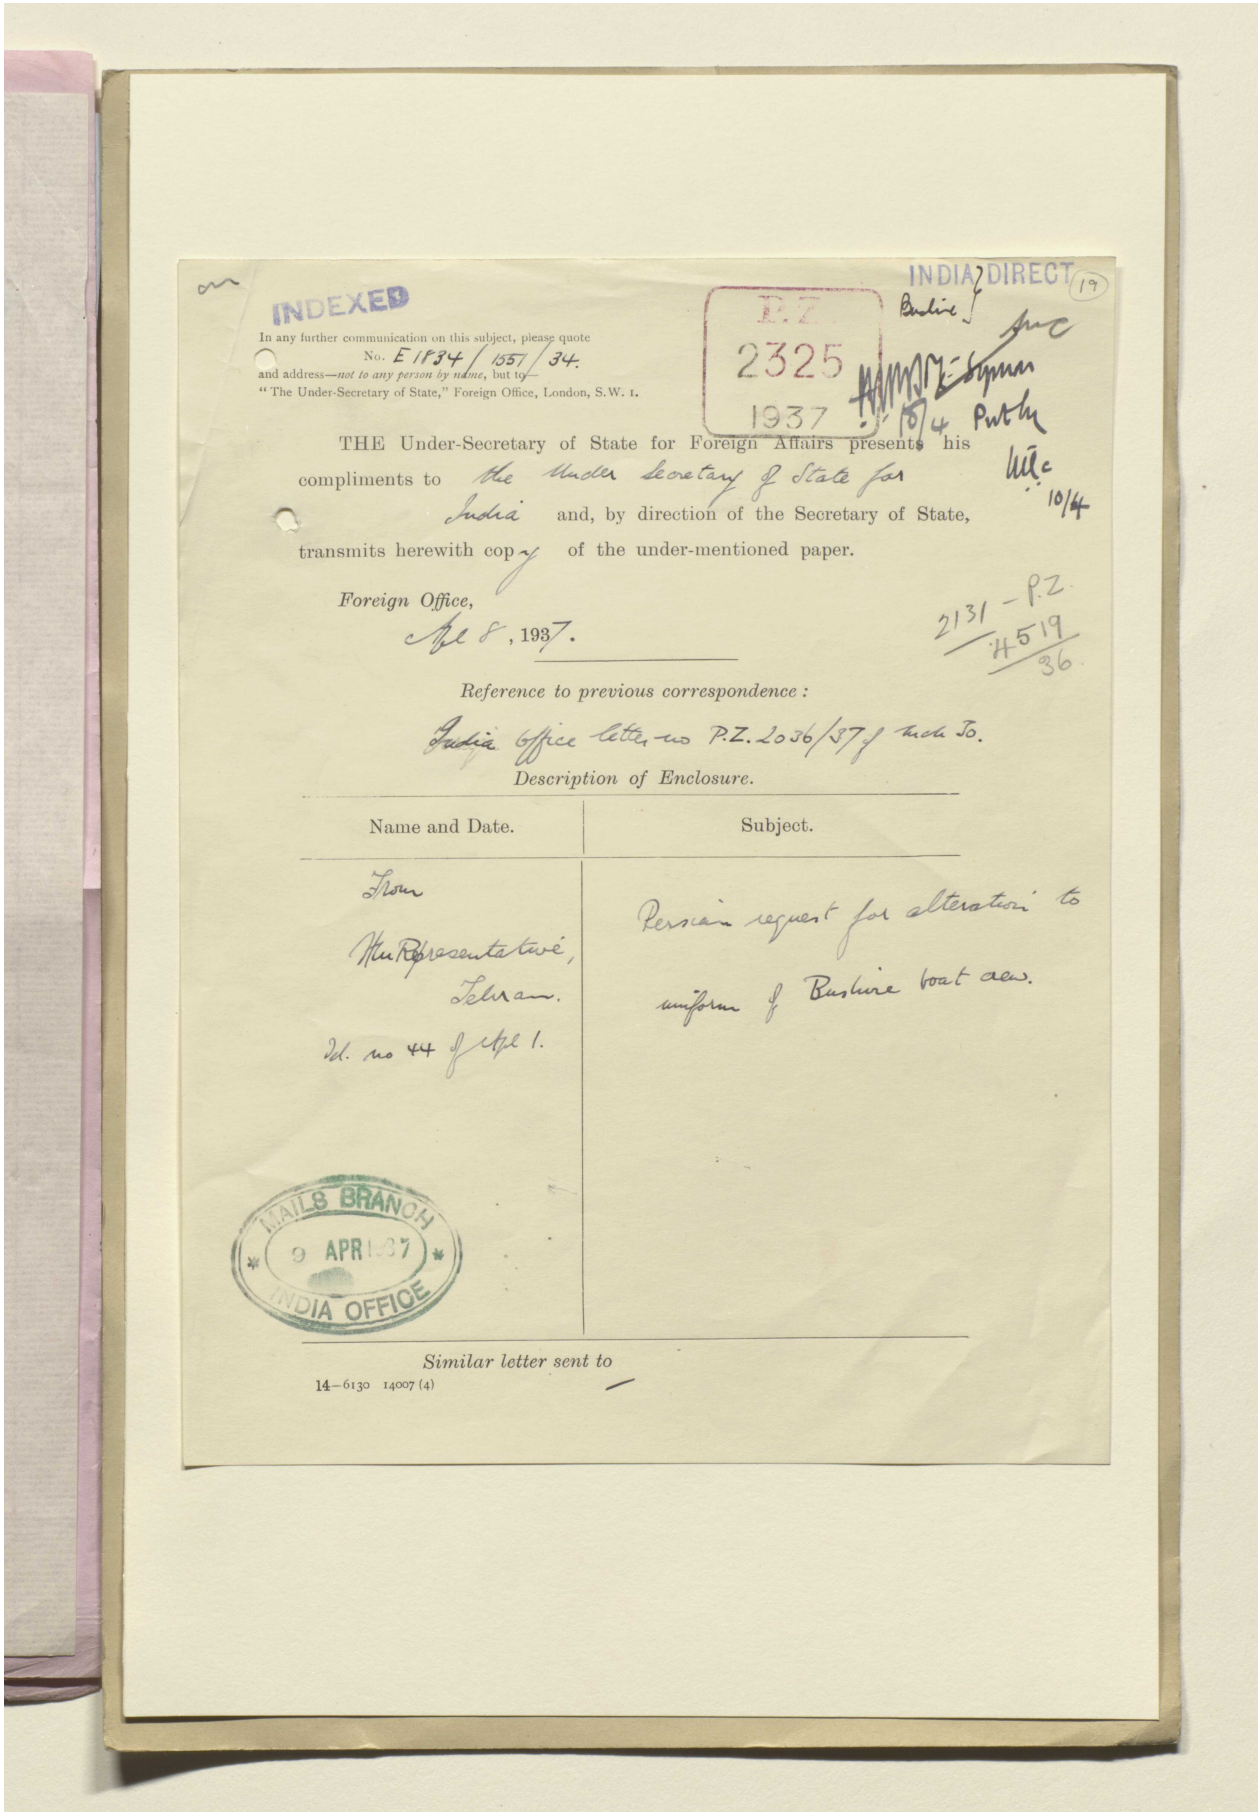 INDIA DIRECT
19
Bushire
INDEXED
P.Z.
2325
1937
In any further communication on this subject, please quote
No. E 1834/1551/34.
and address—not to any person by name, but to—
"The Under-Secretary of State," Foreign Office, London, S.W. 1.
10/4
THE Under-Secretary of State for Foreign Affairs presents his
compliments to the Under Secretary of State for
India and, by direction of the Secretary of State,
transmits herewith copy of the under-mentioned paper.
10/4
Foreign Office,
Apl 8, 1937.
2131 - P.Z.
4519
36
Reference to previous correspondence:
India Office letter no P.Z. 2036/37 of Mch 30.
Description of Enclosure.
Name and Date.
Subject.
From
HM Representative,
Tehran.
Tel. no 44 of Apl 1.
Persian request for alteration to
uniform of Bushire boat crew.
MAILS BRANCH
9 APR 1937
INDIA OFFICE
Similar letter sent to
14—6130 14007 (4)